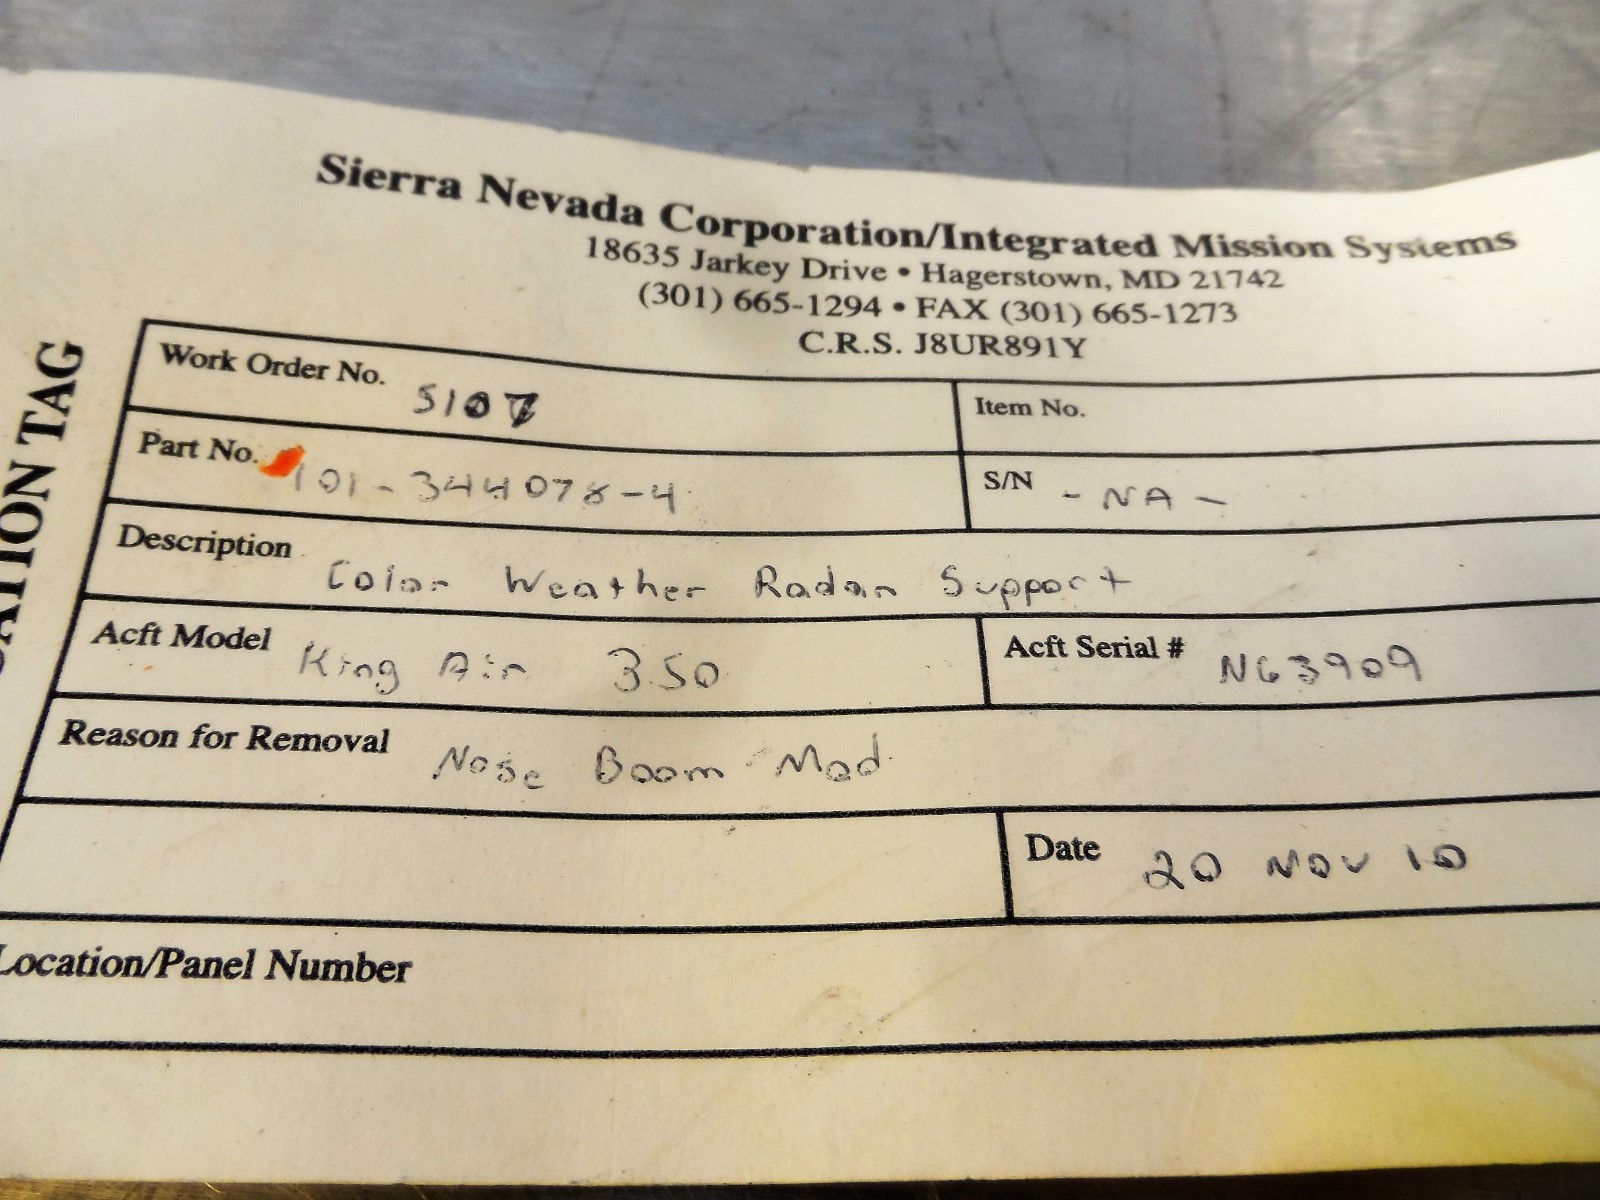 Sierra Nevada Corporation/Integrated Mission Systems
18635 Jarkey Drive • Hagerstown, MD 21742
(301) 665-1294 • FAX (301) 665-1273
C.R.S. J8UR891Y
TAG
Work Order No. 5107
Item No.
Part No. 101-344078-4
S/N - NA -
Description Color Weather Radar Support
Acft Model King Air 350
Acft Serial # N63909
Reason for Removal Nose Boom Mod
Date 20 NOV 10
Location/Panel Number